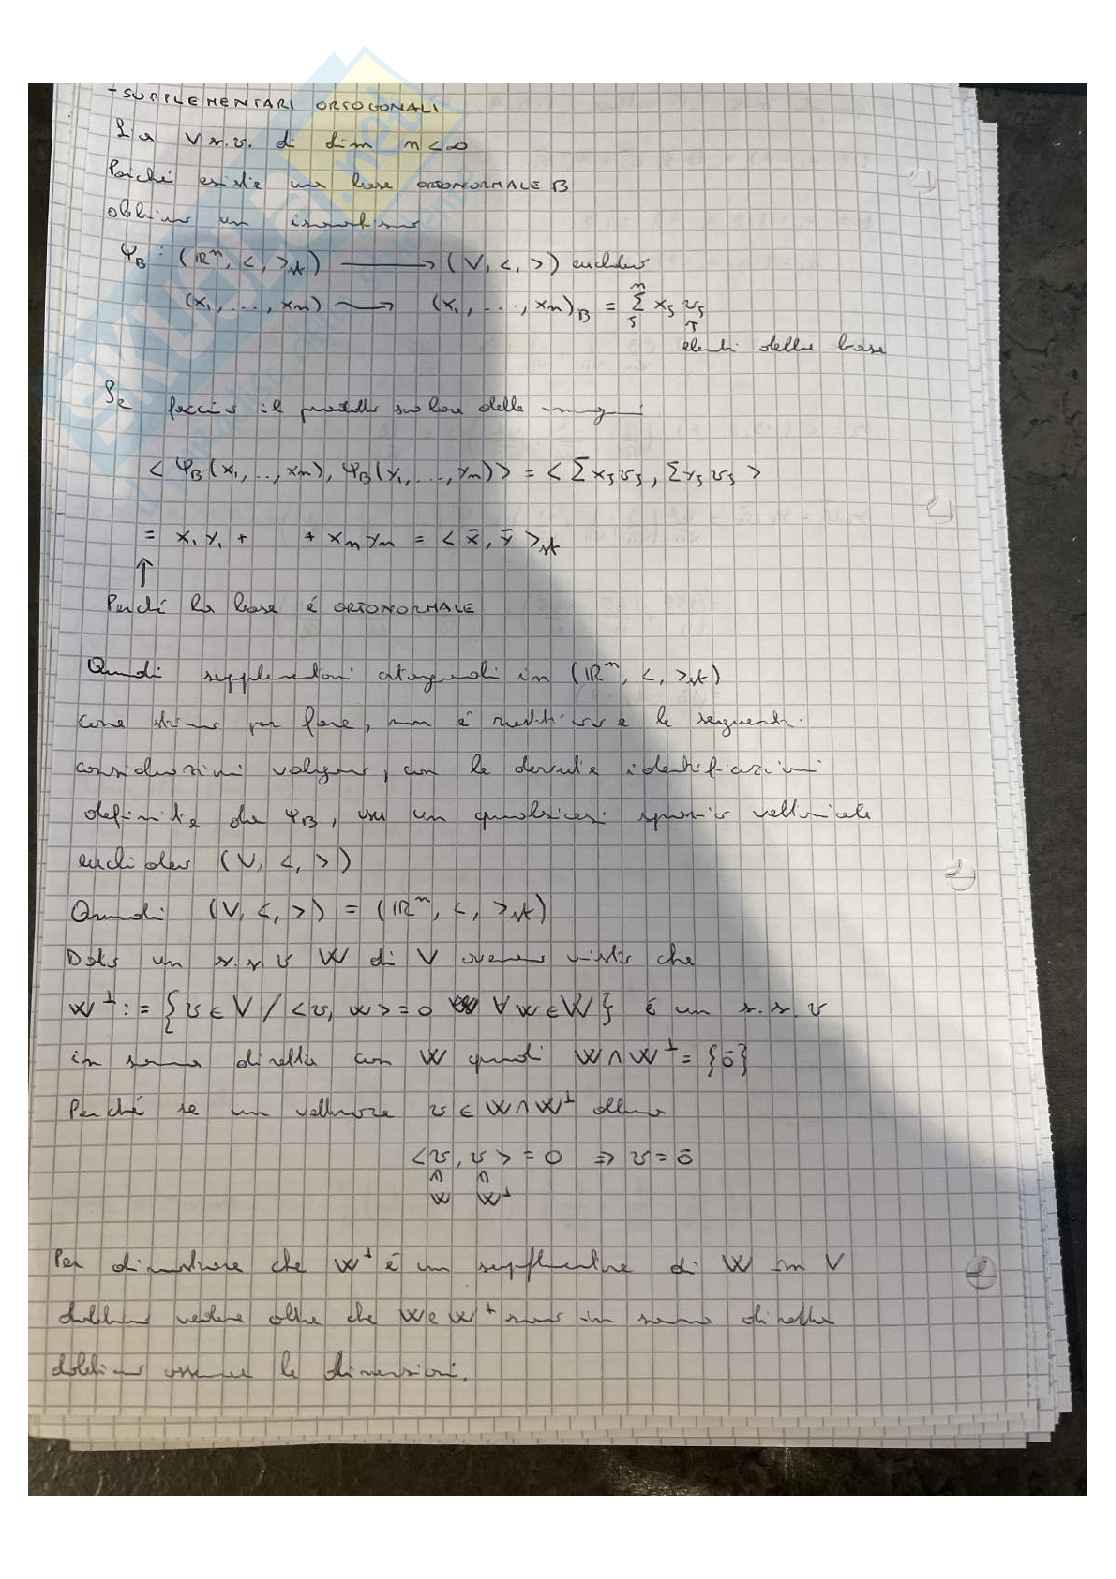 - SUPPLEMENTARI ORTOGONALI
Sia V s.v. di dim n<∞
Poiché esiste una base ORTONORMALE B
obbiamo un isomorfismo
Ψ_B : (ℝⁿ, <, >_st) ⟶ (V, <, >) euclideo
(x₁, ..., xₙ) ⟿ (x₁, ..., xₙ)_B = Σ xⱼ vⱼ
n
j
↑
elementi della base
Se faccio il prodotto scalare delle immagini
< Ψ_B(x₁, .., xₙ), Ψ_B(y₁, ..., yₙ) > = < Σ xⱼvⱼ, Σ yⱼ vⱼ >
= x₁y₁ + + xₙyₙ = < x̄, ȳ >_st
↑
Perché la base é ORTONORMALE
Quindi supplementari ortogonali in (ℝⁿ, <, >_st)
come stiamo per fare, non é restrittivo e le seguenti
considerazioni valgono, con le dovute identificazioni
definite da Ψ_B, su un qualsiasi spazio vettoriale
euclideo (V, <, >)
Quindi (V, <, >) = (ℝⁿ, <, >_st)
Dato un s.s.v W di V avevamo visto che
W^⊥ := {v ∈ V / <v, w> = 0 ∀ w ∈ W} é un s.s.v
in somma diretta con W quindi W ∩ W^⊥ = {ō}
Perché se un vettore v ∈ W ∩ W^⊥ allora
<v, v> = 0 ⇒ v = ō
∩ ∩
W W^⊥
Per dimostrare che W^⊥ é un supplementare di W in V
dobbiamo vedere oltre che W e W^⊥ sono in somma diretta
dobbiamo osservare le dimensioni.